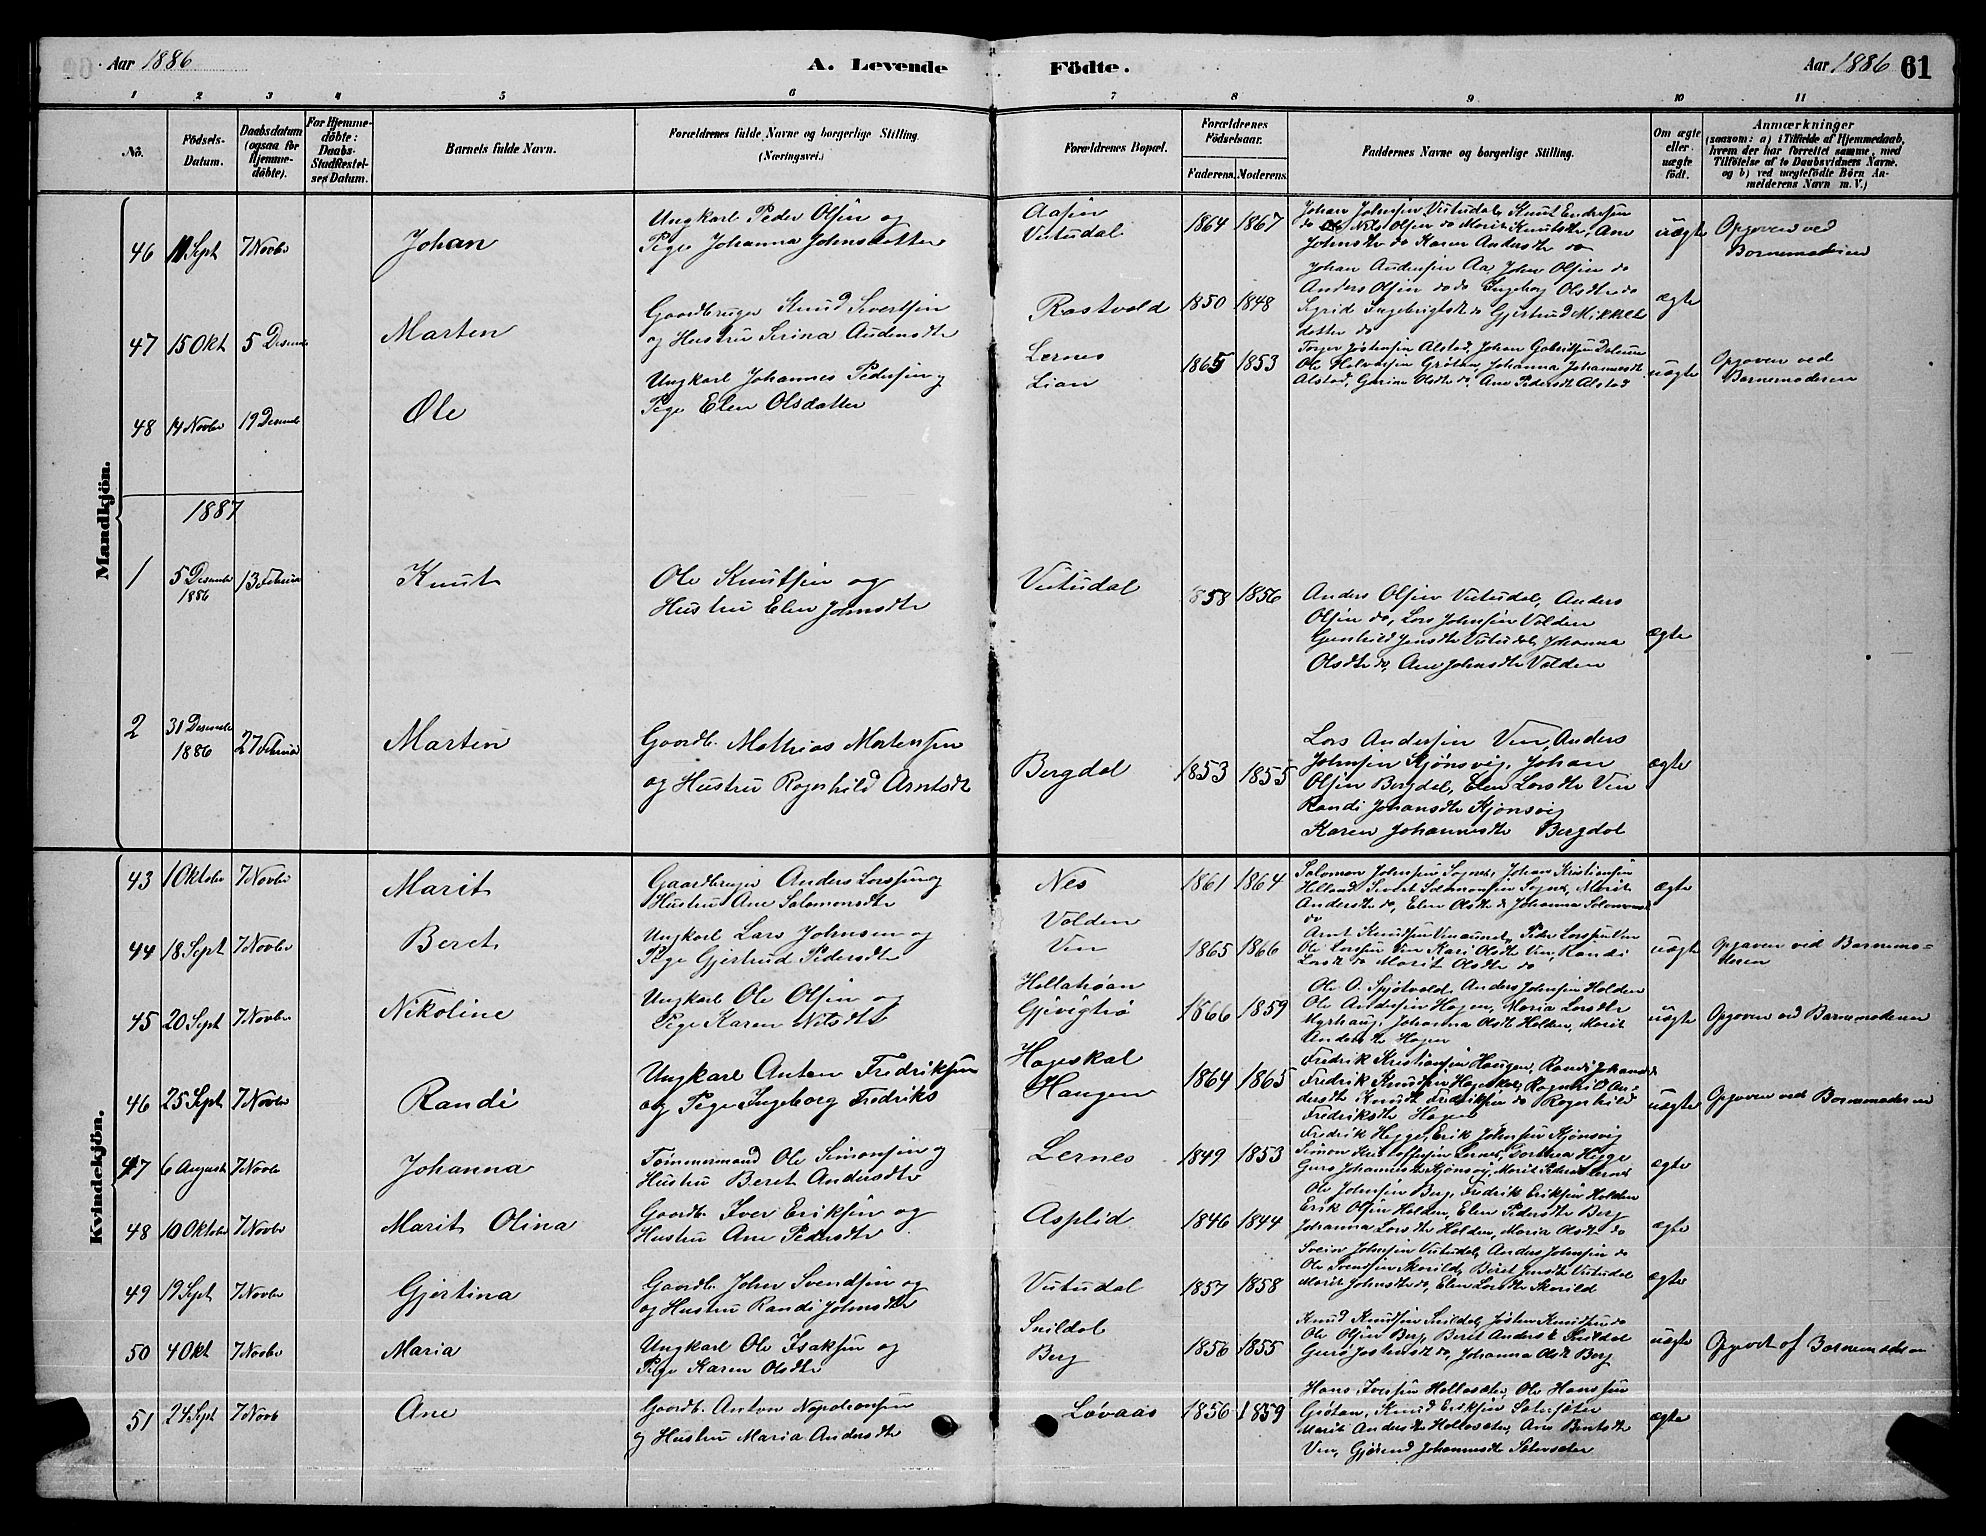 Aar 1886
A. Levende Födte.
Aar 1886 61
1 2 3 4 5 6 7 8 9 10 11
No.
Födsels-
Datum.
Daabsdatum
(ogsaa for
Hjemme-
döbte).
For Hjemme-
döbte:
Daabs-
Stadfæstel-
ses Datum.
Barnets fulde Navn.
Forældrenes fulde Navne og borgerlige Stilling.
(Næringsvei.)
Forældrenes Bopæl.
Forældrenes
Födselsaar.
Faderens. Moderens.
Faddernes Navne og borgerlige Stilling.
Om ægte
eller
uægte
födt.
Anmærkninger
(saasom: a) i Tilfælde af Hjemmedaab,
hvem der har forrettet samme, med
Tilföielse af to Daabsvidners Navne.
og b) ved uægtefödte Börn An-
melderens Navn m. V.)
Mandkjön.
46 11 Sept 7 Novbr Johan
Ungkarl Peder Olsen og
Pige Johanna Johnsdatter
Aasen
Vutudal
1864 1867
Johan Johnsen Vutudal, Knut Endresen
do Nils Olsen do Marit Knutsdtr, Ane
Johnsdtr do Karen Andersdtr do
uægte
Opgaven ved
Barnemoderen
47 15 Okt 5 Desember Marten
Gaardbruger Knud Sivertsen
og Hustru Serina Andersdtr
Rostvold
1850 1848
Johan Andersen Aa, John Olsen do
Anders Olsen do do Ingebog Olsdtr do
Sigrid Ingebrigtsdtr do Gjertrud Mikkels
datter do
ægte
48 14 Novbr 19 Desemb Ole
Ungkarl Johannes Pedersen og
Pige Elen Olsdatter
Lernes
Lian
1865 1853
Ole Halvorsen Grötan, Johanna Johannesdtr
Alstad, Gurine Olsdtr do, Ane Pedersdtr Alstad
uægte
Opgaven ved
Barnemoderen
1887
1 5 Desember 1886 13 Februar Knut
Ole Knutsen og
Hustru Elen Johnsdtr
Vutudal
1858 1856
Anders Olsen Vutudal, Anders
Olsen do, Lars Johnsen Volden
Gunhild Jensdtr Vutudal, Johanna
Olsdtr do, Ane Johnsdtr Volden
ægte
2 31 Desember 1886 27 Februar Marten
Gaardb. Mathias Mortensen
og Hustru Ragnhild Arntsdtr
Bergdal
1853 1855
Lars Andersen Ven, Anders
Johnsen Kjönsvig, Johan
Olsen Bergdal, Elen Larsdtr Ven
Randi Johansdtr Kjönsvig
Karen Johannesdtr Bergdal
ægte
Kvindekjön.
43 1 Oktober 7 Novbr Marit
Gaardbruger Anders Larssen og
Hustru Ane Salomonsdtr
Nes
1861 1864
Salomon Johnsen Sognes, Johan Kristiansen
Helland, Sivert Salomonsen Sognes, Marit
Andersdtr do, Elen Olsdtr do Johanna Salomonsd
do
ægte
44 18 Sept 7 Novbr Beret
Ungkarl Lars Johnsen og
Pige Gjertrud Pedersdtr
Volden
Ven
1865 1866
Arnt Knudsen Venaunet, Peder Larssen Ven
Ole Larssen Ven Kari Olsdtr Ven, Randi
Larsdtr do Marit Olsdtr do
uægte
Opgaven ved Barnemo-
deren
45 20 Sept 7 Novbr Nikoline
Ungkarl Ole Olsen og
Pige Karen Nilsdtr
Hollatröan
Gjevigtrö
1866 1859
Ole O. Spjötvold, Anders Johnsen Holden
Ole Andersen Hagen, Maria Larsdtr
Myrhaug, Johanna Olsdtr Holden, Marit
Andersdtr Hagen
uægte
Opgaven ved Barnemoderen
46 25 Sept 7 Novbr Randi
Ungkarl Anton Fredriksen
og Pige Ingeborg Fredriks
Hageskal
Haugen
1864 1865
Fredrik Kristiansen Haugen, Randi Johansd
Fredrik Knudsen Hageskal, Ragnhild An-
dersdtr Knudt Fredriksen do Ragnhild
Fredriksdtr Hagen
uægte
Opgaven ved Barnemoderen
47 6 August 7 Novbr Johanna
Tömmermand Ole Simonsen og
Hustru Beret Andersdtr
Lernes
1849 1853
Fredrik Hegge, Erik Johnsen Kjönsvig
Simon Kristoffersen Lernes, Dorthea Hegge
Guro Johannesdtr Kjönsvig, Marit Pedersdtr Lernes
ægte
48 10 Oktober 7 Novbr Marit Olina
Gaardb. Iver Eriksen og
Hustru Ane Pedersdtr
Asplid
1846 1844
Ole Johnsen Berg, Fredrik Eriksen Holden
Erik Olsen Holden, Elen Pedersdtr Berg
Johanna Larsdtr Holden, Maria Olsdtr do
ægte
49 19 Sept 7 Novbr Gjertina
Gaardb. John Svendsen og
og Hustru Randi Johnsdtr
Vutudal
1857 1858
Svein Johnsen Vutudal, Anders Johnsen do
Ole Svendsen Skorild, Beret Jensdtr Vutudal
Marit Johnsdtr do, Elen Larsdtr Skorild
ægte
50 4 Okt 7 Novbr Maria
Ungkarl Ole Isaksen og
Pige Karen Olsdtr
Snildal
Berg
1856 1855
Knud Knudsen Snildal, Josten Knudsen do
Ole Olsen Berg, Beret Andersdtr Snildal
Guro Jostensdtr do, Johanna Olsdtr Berg
uægte
Opgivet af Barnemoderen
51 24 Sept 7 Novb Ane
Gaardb. Anton Napoleonsen
og Hustru Maria Andersdtr
Lövaas
1856 1859
Hans Iversen Hollasæter, Ole Hanssen
Grötan, Knud Eriksen Solvsæter
Marit Andersdtr Hollasæter, Ane Berntsdtr
Ven, Gjörend Johannesdtr Solvsæter
ægte